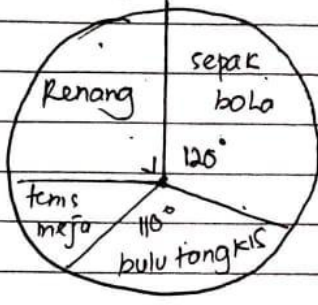 Renang
sepak
bola
120°
tenis
meja
110°
bulu tangkis